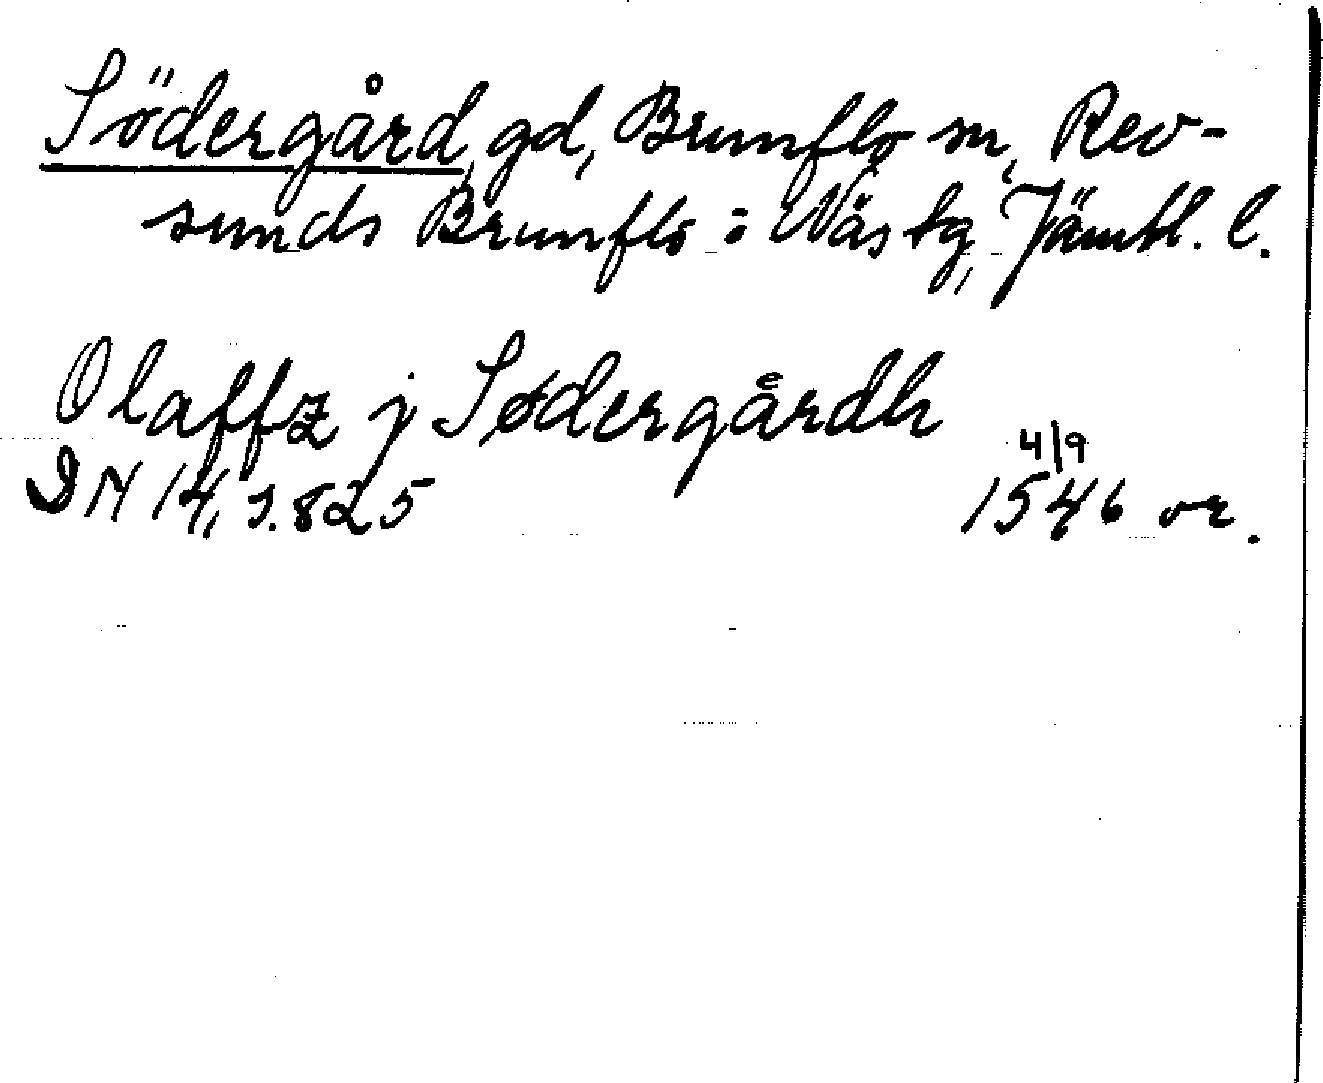 Södergård, gd, Brunflo sn, Rev-
sunds Brunflo o Näs tg, Jämtl. l.
Olaffz j Sødergårdh
DN 14, s. 825
4/9
1546 or.